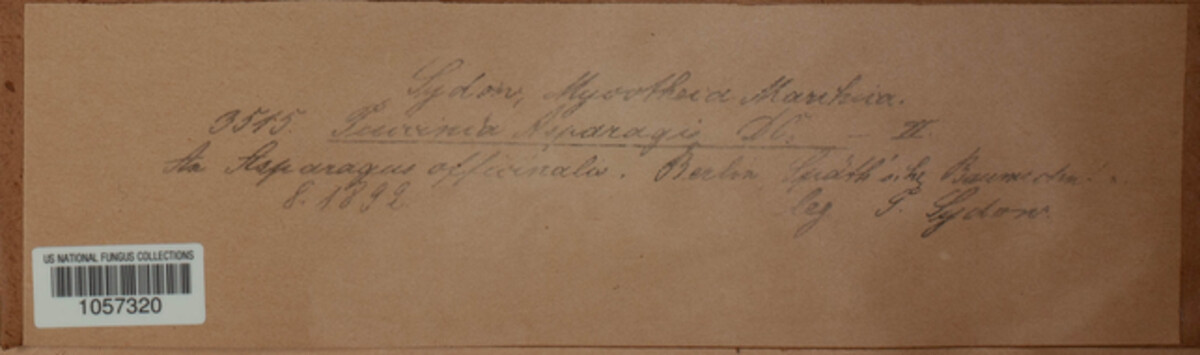 Sydow, Mycotheca Marchica.
3515. Puccinia Asparagi DC. — II.
An Asparagus officinalis. Berlin, Späth'sche Baumschul.
8. 1892 leg. P. Sydow.
US NATIONAL FUNGUS COLLECTIONS
1057320